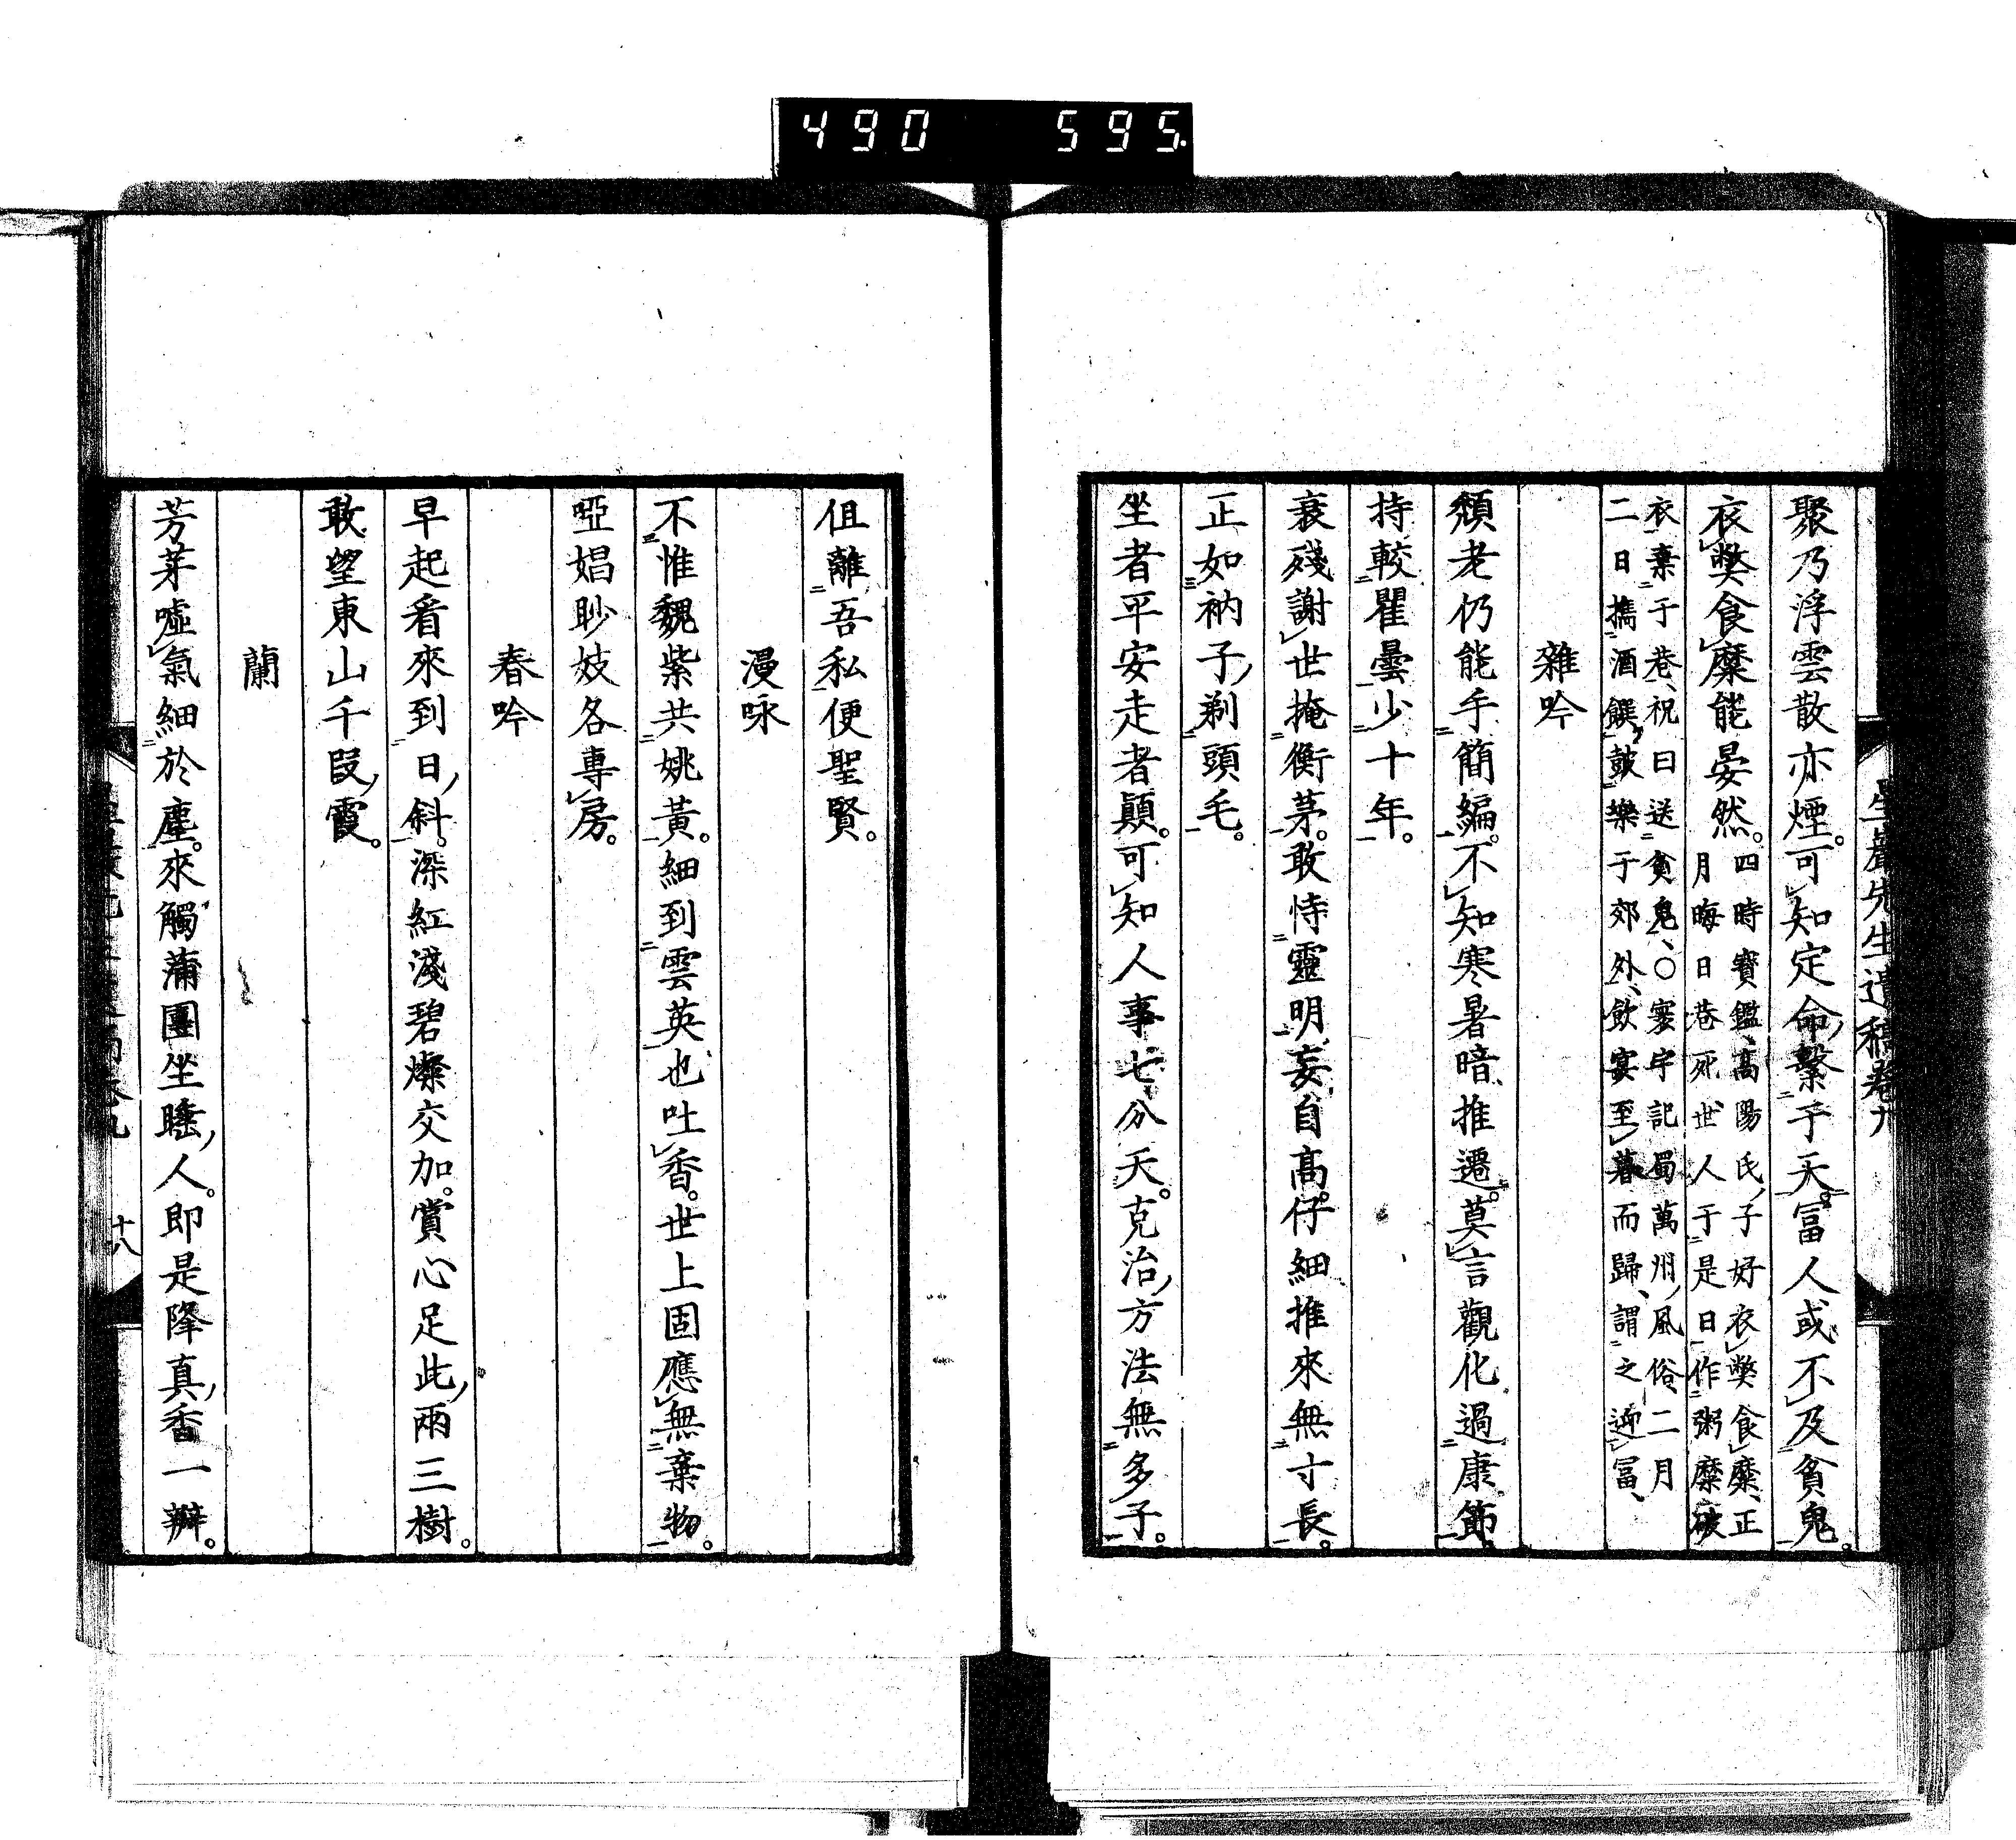 490 595
星巖先生遺稿卷九
聚乃浮雲散亦煙。可知定命繫于天。冨人或不及貧鬼。
衣獘食糜能晏然。四時寳鑑、髙陽氏子好衣獘食糜、正
月晦日巷死、世人于是日作粥糜破
衣、棄于巷、祝曰送貧鬼、○寰宇記蜀萬州風俗、二月
二日擕酒饌、鼓樂于郊外、飲宴至暮而歸、謂之迎冨、
雜吟
頽老仍能手簡編。不知寒暑暗推遷。莫言觀化過康節
持較瞿曇少十年。
衰殘謝世掩衡茅。敢恃靈明妄自高。仔細推來無寸長。
正如衲子剃頭毛。
坐者平安走者顚。可知人事七分天。克治方法無多子。
但離吾私便聖賢。
漫咏
不惟魏紫共姚黃。細到雲英也吐香。世上固應無棄物。
啞娼眇妓各專房。
春吟
早起看來到日斜。深紅淺碧燦交加。賞心足此兩三樹。
敢望東山千段霞。
蘭
芳芽噓氣細於塵。來觸蒲團坐睡人。即是降真香一瓣。
十八